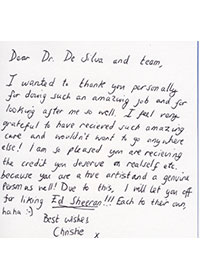 Dear Dr. De Silva and team,
I wanted to thank you personally
for doing such an amazing job and for
looking after me so well. I feel very
grateful to have recieved such amazing
care and wouldn't want to go anywhere
else! I am so pleased you are recieving
the credit you deserve on realself etc.
because you are a true artist and a genuine
person as well! Due to this, I will let you off
for liking Ed Sheeran!!! Each to their own,
haha :-)
Best wishes
Christie
x